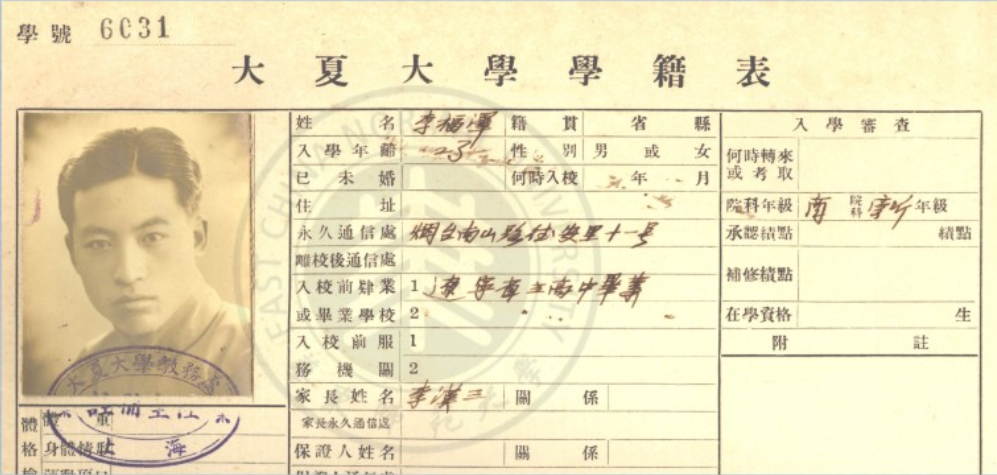 學號 6031
大夏大學學籍表
姓名 李福渾 籍貫 省 縣
入學年齡 23 性別 男或女
已未婚 何時入校 年 月
住址
永久通信處 烟台南山路 里十一号
離校後通信處
入校前肄業 1 遼寧省立 高中畢業
或畢業學校 2
入校前服 1
務機關 2
家長姓名 李漢三 關係
家長永久通信處
保證人姓名 關係
入學審查
何時轉來
或考取
院科年級 商 院科 年級
承認績點 績點
補修績點
在學資格 生
附註
大夏大學教務處
上海
體格 體重
身體情狀
EAST CHINA NOR